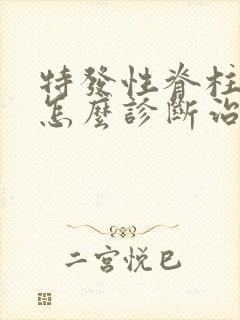 特發性脊柱
怎麼診斷治
二宮悅巳